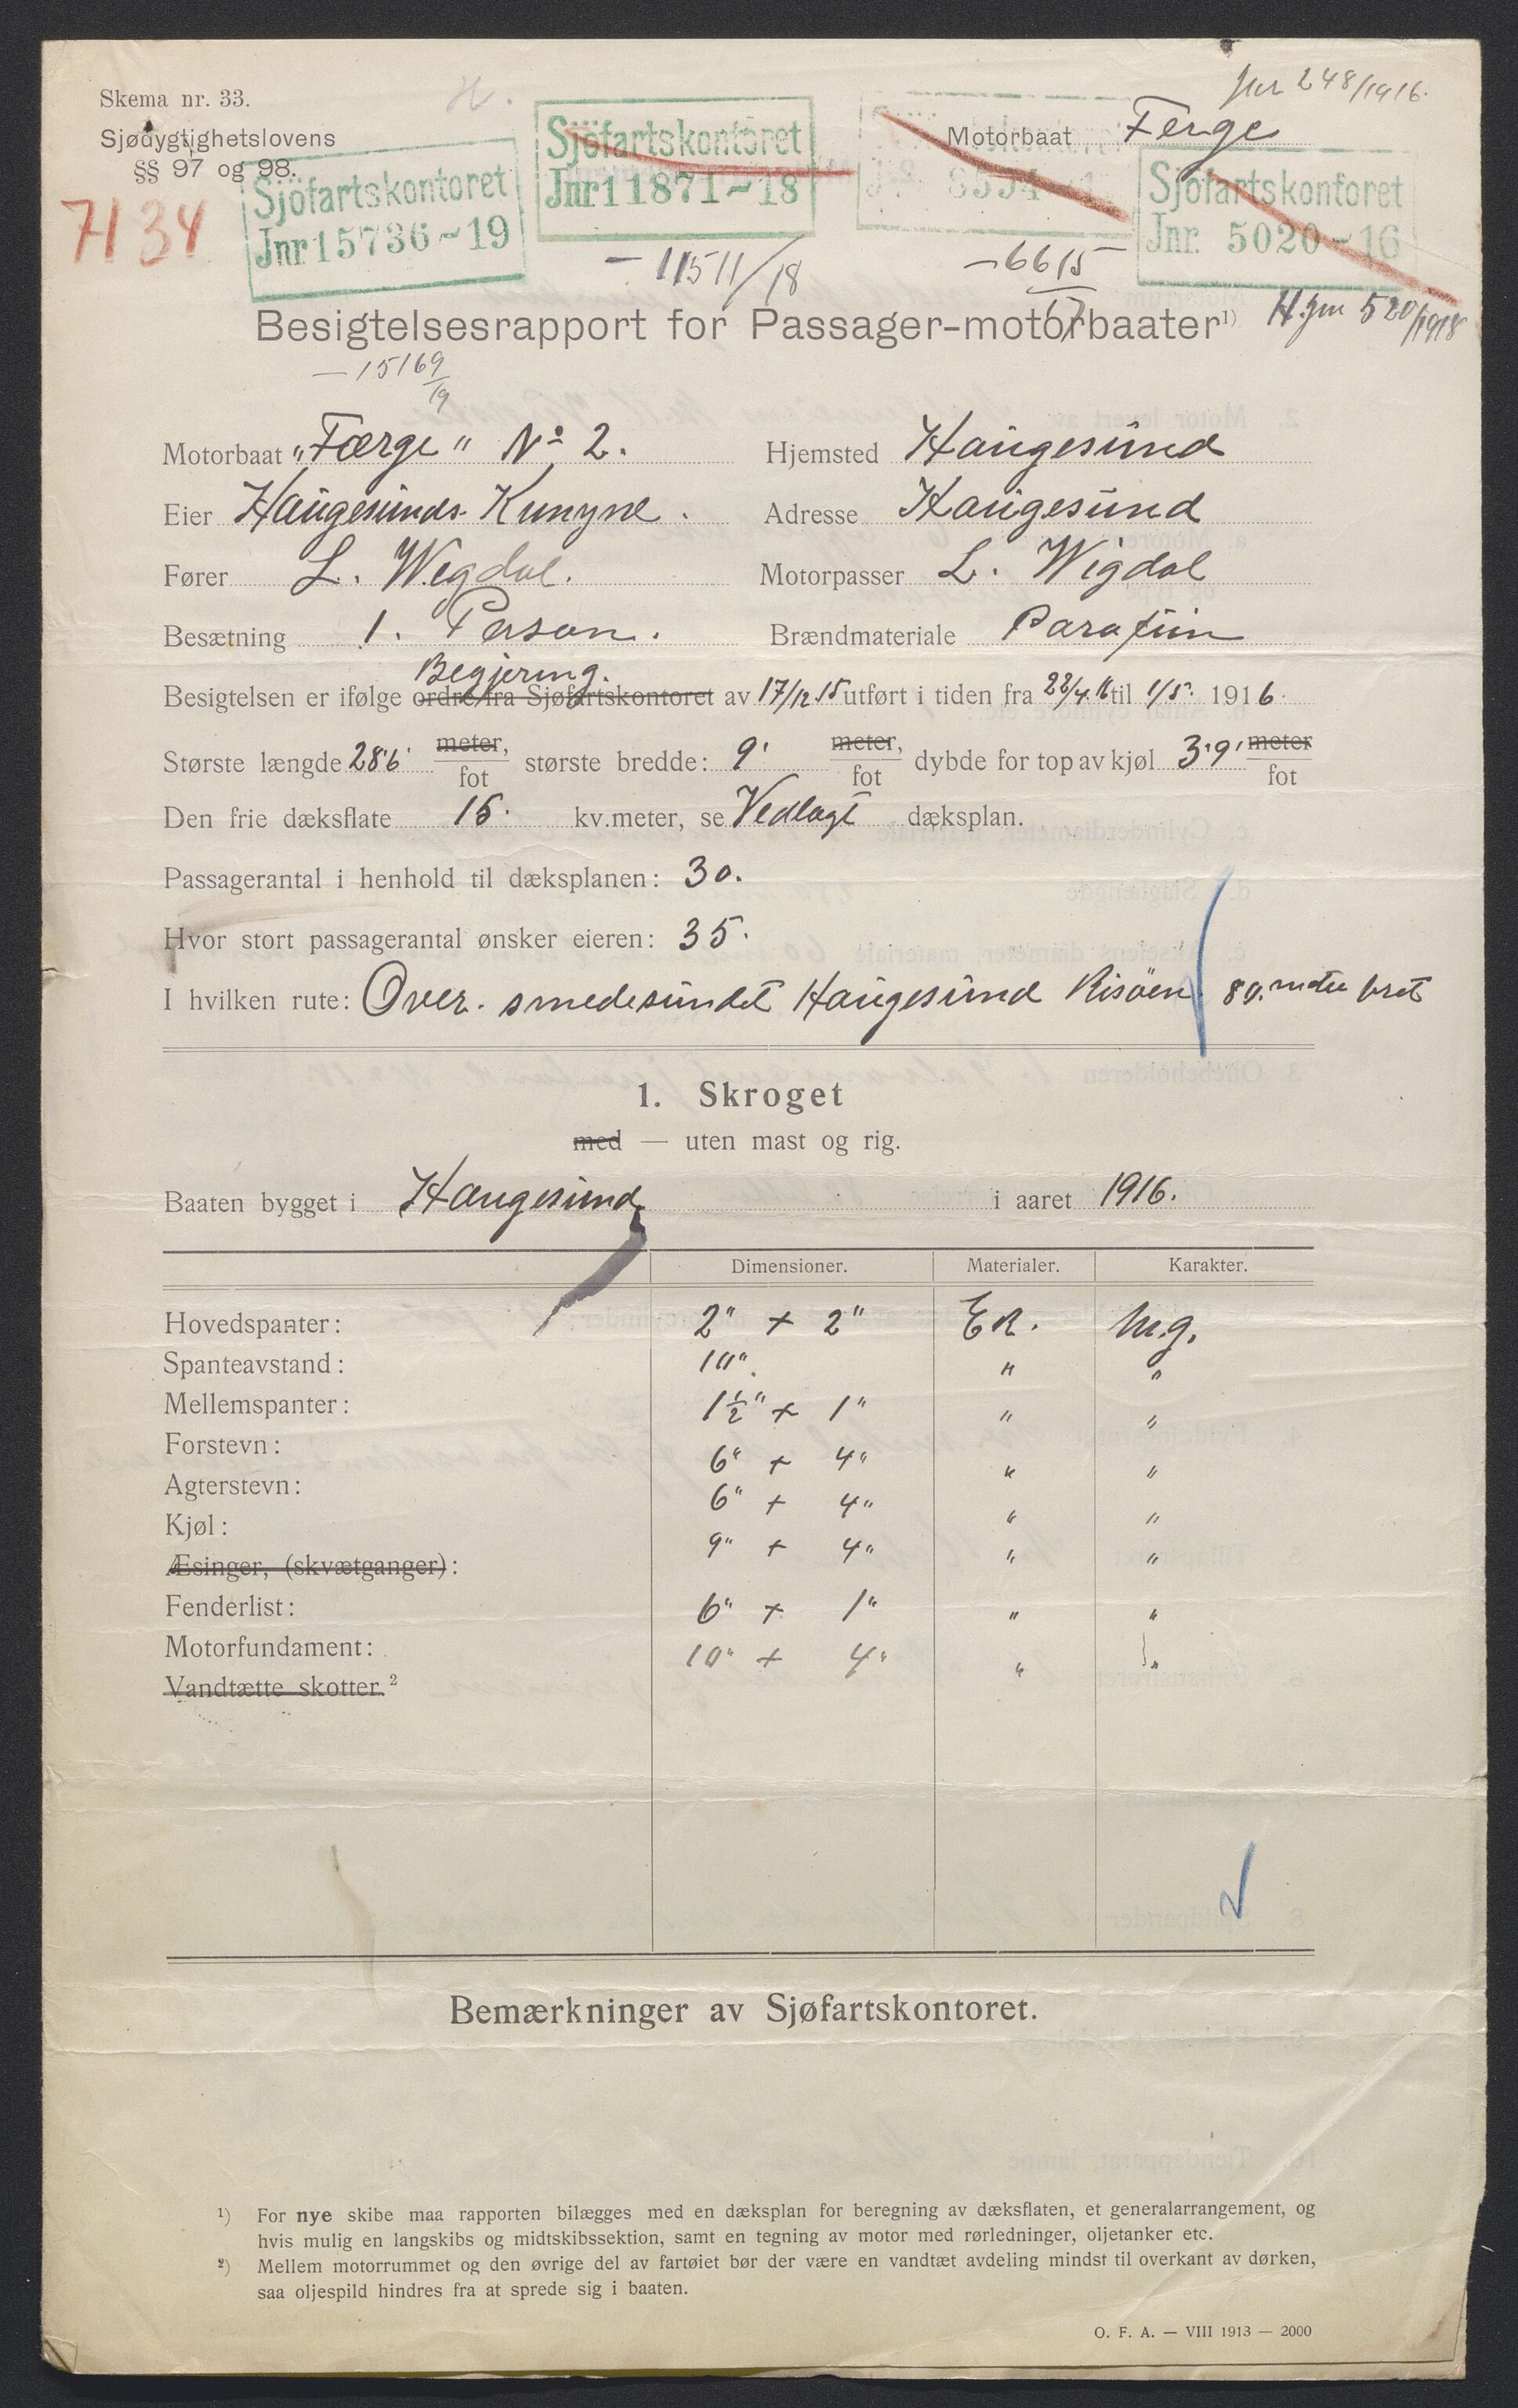 Jnr 248/1916.
Skema nr. 33.
Sjødygtighetslovens
§§ 97 og 98.
Motorbaat Ferge
7134
Sjöfartskontoret
Jnr 15736-19
Sjöfartskontoret
Jnr 11871-18
Sjöfartskontoret
Jnr. 5020-16
- 11511/18
- 6615/17
H.jnr 520/1918
Besigtelsesrapport for Passager-motorbaater¹)
- 15169/19
Motorbaat „Færge“ No 2. Hjemsted Haugesund
Eier Haugesunds Kunyne. Adresse Haugesund
Fører L. Wigdal. Motorpasser L. Wigdal
Besætning 1. Person. Brændmateriale Parafiin
Begjering.
Besigtelsen er ifølge ordre fra Sjøfartskontoret av 17/12 15 utført i tiden fra 22/4.16 til 1/5. 1916.
Største længde 28'6' meter, fot største bredde: 9' meter, fot dybde for top av kjøl 3'9' meter fot
Den frie dæksflate 15. kv.meter, se Vedlagt dæksplan.
Passagerantal i henhold til dæksplanen: 30.
Hvor stort passagerantal ønsker eieren: 35.
I hvilken rute: Over. smedesundet Haugesund Risöen. 80. meter bret
1. Skroget
med — uten mast og rig.
Baaten bygget i Haugesund i aaret 1916.
Dimensioner. Materialer. Karakter.
Hovedspanter: 2" + 2" Ek. M.g.
Spanteavstand: 10" " "
Mellemspanter: 1½" + 1" " "
Forstevn: 6" + 4" " "
Agterstevn: 6" + 4" " "
Kjøl: 9" + 4" " "
Æsinger, (skvætganger):
Fenderlist: 6" + 1" " "
Motorfundament: 10" + 4" " "
Vandtætte skotter.²
Bemærkninger av Sjøfartskontoret.
¹) For nye skibe maa rapporten bilægges med en dæksplan for beregning av dæksflaten, et generalarrangement, og
hvis mulig en langskibs og midtskibssektion, samt en tegning av motor med rørledninger, oljetanker etc.
²) Mellem motorrummet og den øvrige del av fartøiet bør der være en vandtæt avdeling mindst til overkant av dørken,
saa oljespild hindres fra at sprede sig i baaten.
O. F. A. — VIII 1913 — 2000